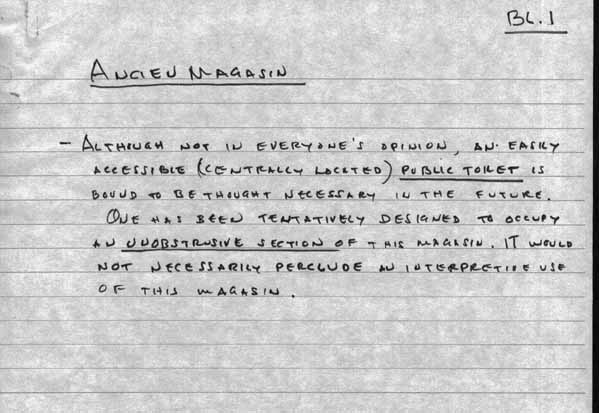 BL.1
ANCIEN MAGASIN
- ALTHOUGH NOT IN EVERYONE'S OPINION, AN EASILY
ACCESSIBLE (CENTRALLY LOCATED) PUBLIC TOILET IS
BOUND TO BE THOUGHT NECESSARY IN THE FUTURE.
ONE HAS BEEN TENTATIVELY DESIGNED TO OCCUPY
AN UNOBSTRUSIVE SECTION OF THIS MAGASIN. IT WOULD
NOT NECESSARILY PERCLUDE AN INTERPRETIVE USE
OF THIS MAGASIN.